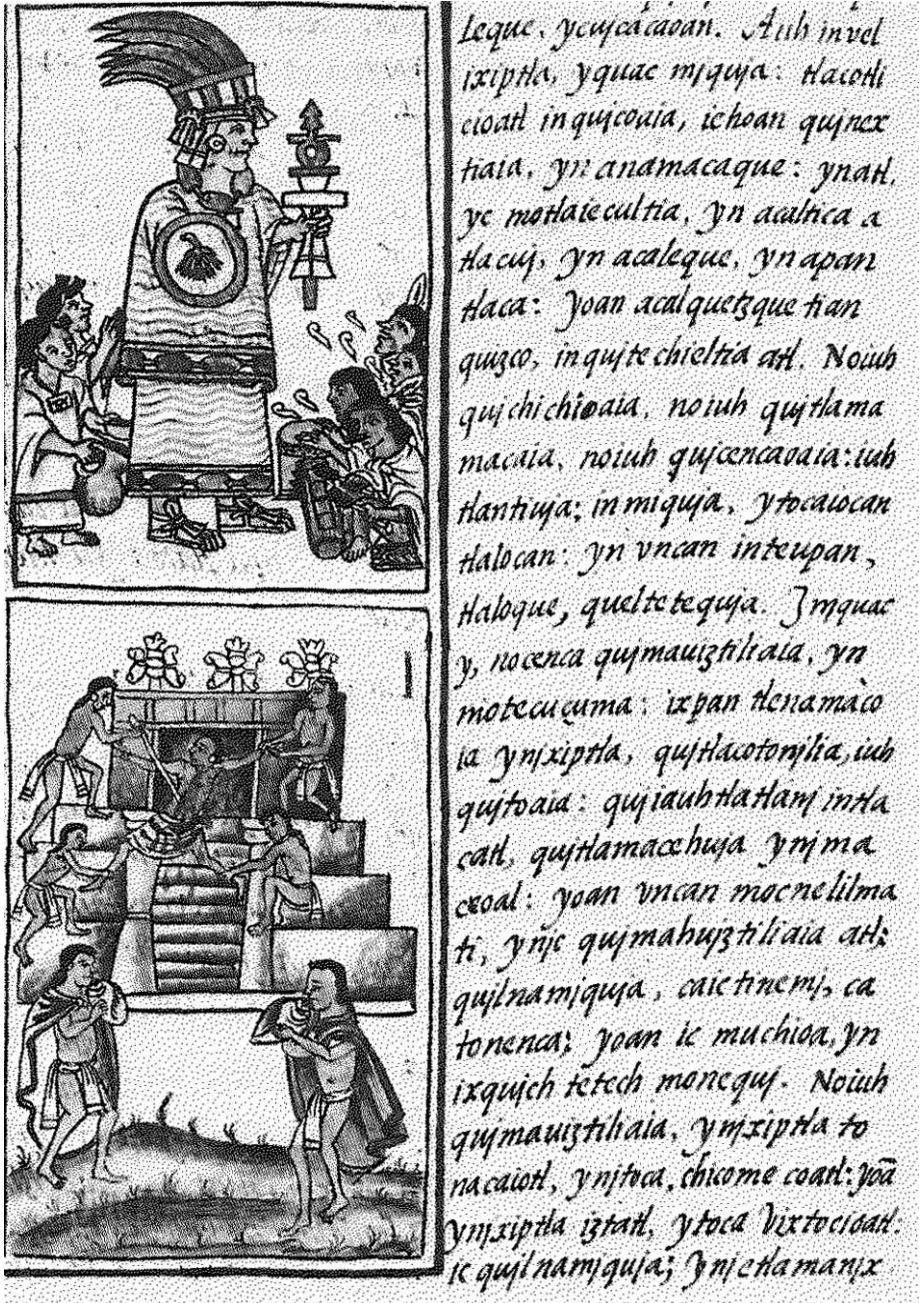 leque, ycujcacaoan. Auh in vel
ixiptla, yquac mjquja: tlacotli
cioatl in qujcoaia, ichoan qujnex
tiaia, yn anamacaque: yn atl,
yc motlaiecultia, yn acaltica a
tlacuj, yn acaleque, yn apan
tlaca: yoan acalquetzque tian
quizco, in qujtechieltia atl. Noiuh
qujchichioaia, noiuh qujtlama
macaia, noiuh qujcencaoaia: iuh
tlantiuja; in mjquja, ytocaiocan
tlalocan: yn vncan inteupan,
tlaloque, queltetequja. Jnjquac
y, nocenca qujmauiztiliaia, yn
motecuçuma: ixpan tlenamaco
ia ynjxiptla, qujtlacotonjlia, iuh
qujtoaia: qujiauhtlatlanj intla
catl, qujtlamacehuja ynj ma
ceoal: yoan vncan mocnelilma
ti, ynjc qujmahujztiliaia atl:
qujlnamjquja, caic tinemj, ca
tonenca; yoan ic muchioa, yn
ixqujch tetech monequj. Noiuh
qujmauiztiliaia, ynjxiptla to
nacaiotl, ynjtoca, chicome coatl: yoã
ynjxiptla iztatl, ytoca Vixtocioatl:
ic qujlnamjquja; ynjc tlamanjx